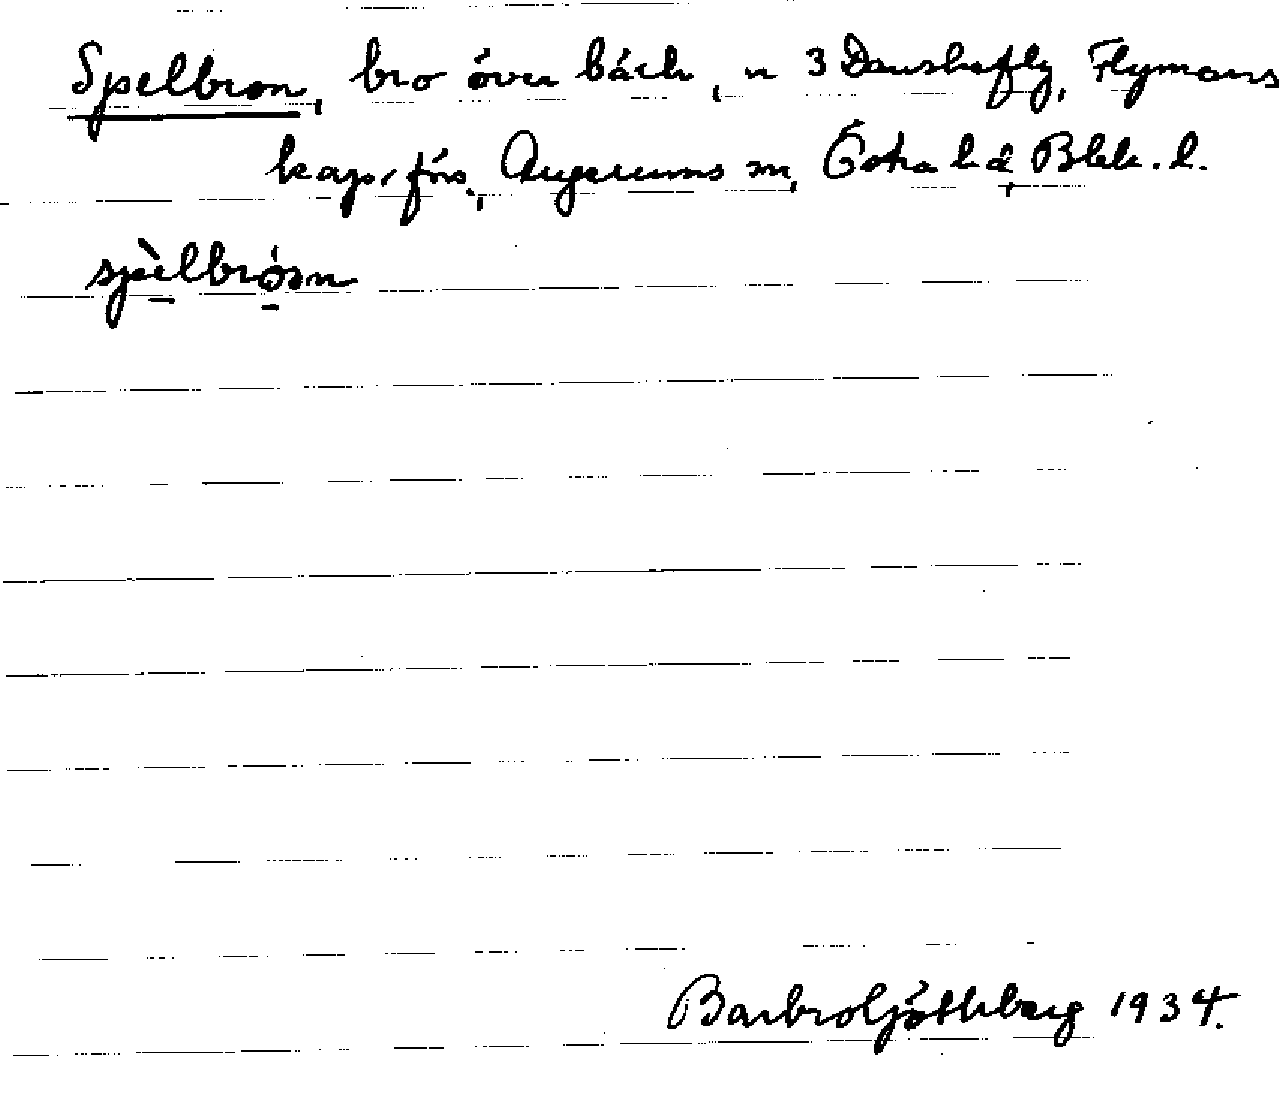 Spelbron, bro över bäck, n 3 Danskafly, Flymans
kap. förs., Augerums sn, Östra hd, Blek. l.
spèlbróən
Barbro Götheberg 1934.